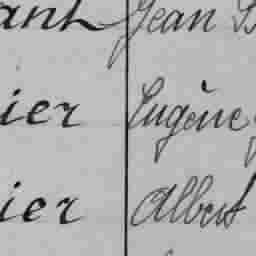 ant Jean B
ier Eugène
ier Albert